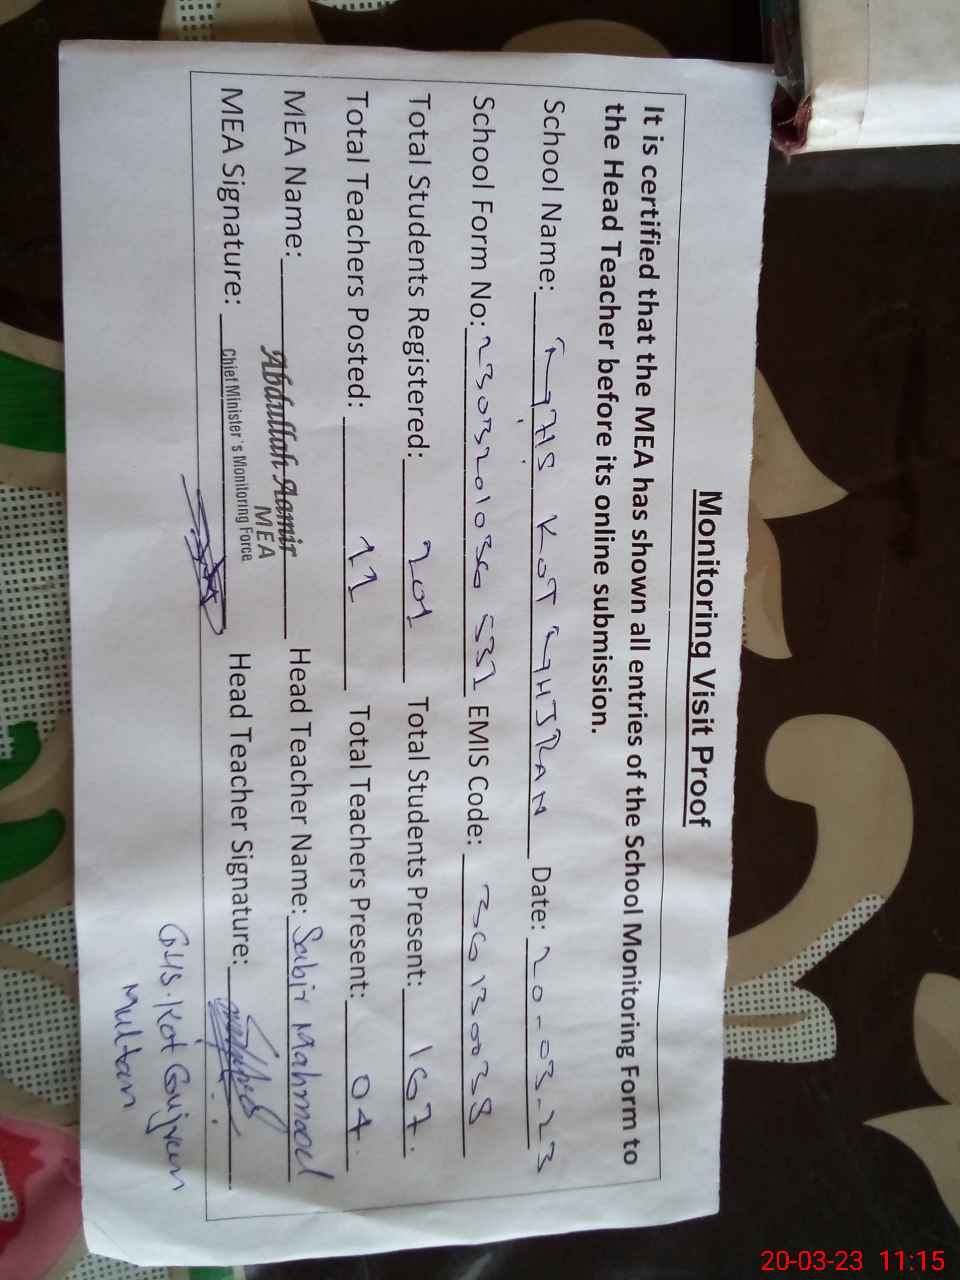 Monitoring Visit Proof
It is certified that the MEA has shown all entries of the School Monitoring Form to
the Head Teacher before its online submission.
School Name: GHS KOT GHJRAN Date: 20-03-23
School Form No: EMIS Code: 36130038
Total Students Registered: 201 Total Students Present: 167
Total Teachers Posted: 11 Total Teachers Present: 04
MEA Name: Abdullah Aamir Head Teacher Name: Sabir Mahmood
MEA
Chief Minister's Monitoring Force
MEA Signature: Head Teacher Signature:
GHS. Kot Gujran
Multan
20-03-23 11:15